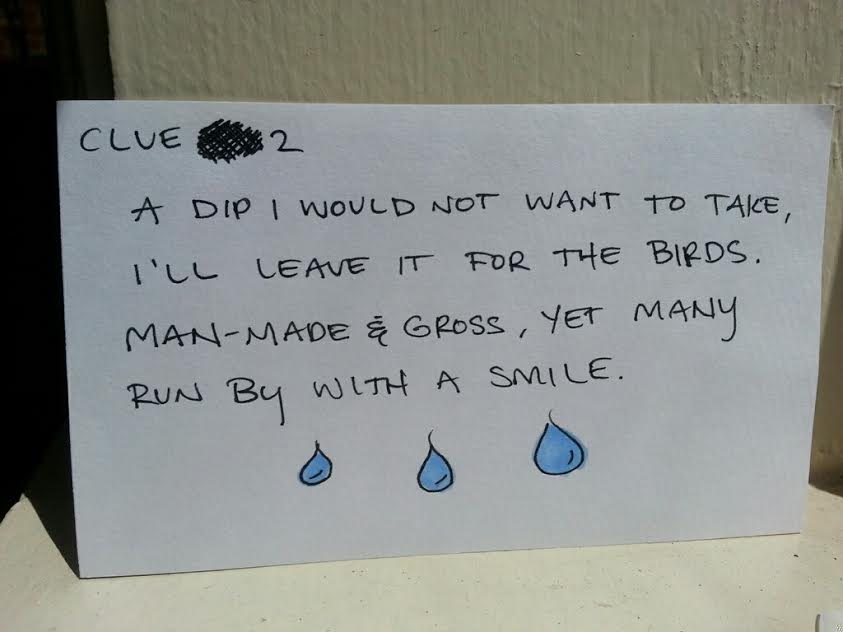 CLUE 2
A DIP I WOULD NOT WANT TO TAKE,
I'LL LEAVE IT FOR THE BIRDS.
MAN-MADE & GROSS, YET MANY
RUN BY WITH A SMILE.